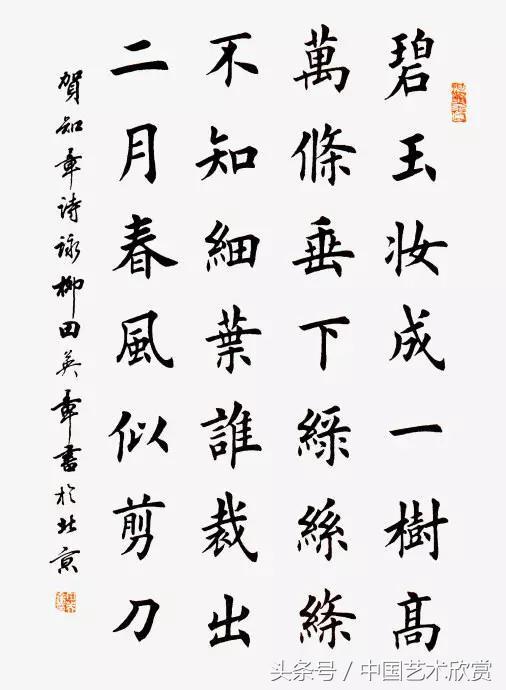 碧玉妆成一樹高
萬條垂下緑絲縧
不知細葉誰裁出
二月春風似剪刀
賀知章诗詠柳田英章書於北京
头条号 / 中国艺术欣赏